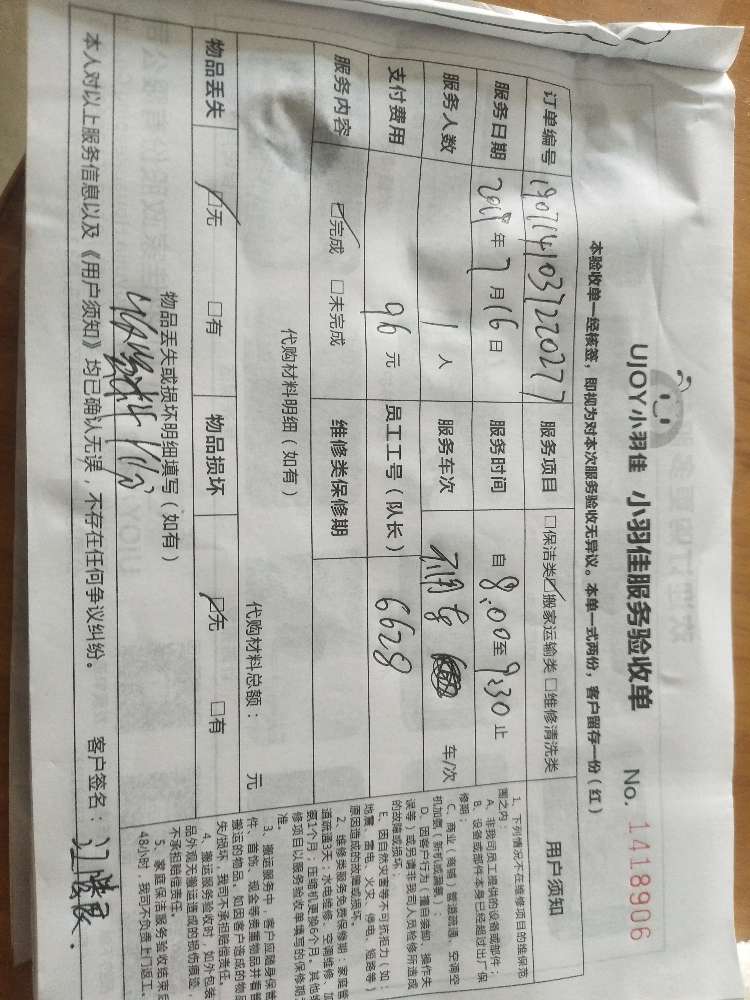 UJOY小羽佳 小羽佳服务验收单 No. 1418906
本验收单一经核签，即视为对本次服务验收无异议。本单一式两份，客户留存一份（红）
订单编号 1907141037220277 服务项目 □保洁类☑搬家运输类 □维修清洗类
服务日期 2019年7月16日 服务时间 自8:00至9:30止
服务人数 1人 服务车次 车/次
支付费用 96元 员工工号（队长） 6628
服务内容 ☑完成 □未完成 维修类保修期
代购材料明细（如有）
代购材料总额： 元
物品丢失 ☑无 □有 物品损坏 ☑无 □有
物品丢失或损坏明细填写（如有）
本人对以上服务信息以及《用户须知》均已确认无误，不存在任何争议纠纷。 客户签名：
用户须知
1、下列情况不在维修项目的维保范
围之内：
A、非我司员工提供的设备或部件；
B、设备或部件本身已经超过出厂保
修期；
C、商业（商铺）管道疏通、空调空
机加氨（新机或漏氨）；
D、因客户行为（擅自装卸、操作失
误等）或另请非我司人员检修所造成
的故障或损坏；
E、因自然灾害等不可抗拒力（如：
地震、雷电、火灾、停电、短路等）
原因造成的故障或损坏。
2、维修类服务免费保修期：家庭管
道疏通3天；水电维修、空调维修、加
氨1个月；压缩机更换6个月。其他维
修项目以服务验收单填写的保修期为
准。
3、搬运服务中，客户应随身保管
件、首饰、现金等贵重物品并看管
搬运的物品，如因客户造成的物品
失/损坏，我司不承担赔偿责任。
4、搬运服务验收时，如外包装
品外观无搬运造成的损伤痕迹，
不承担赔偿责任。
5、家庭保洁服务验收结束后
48小时，我司不负责上门返工。